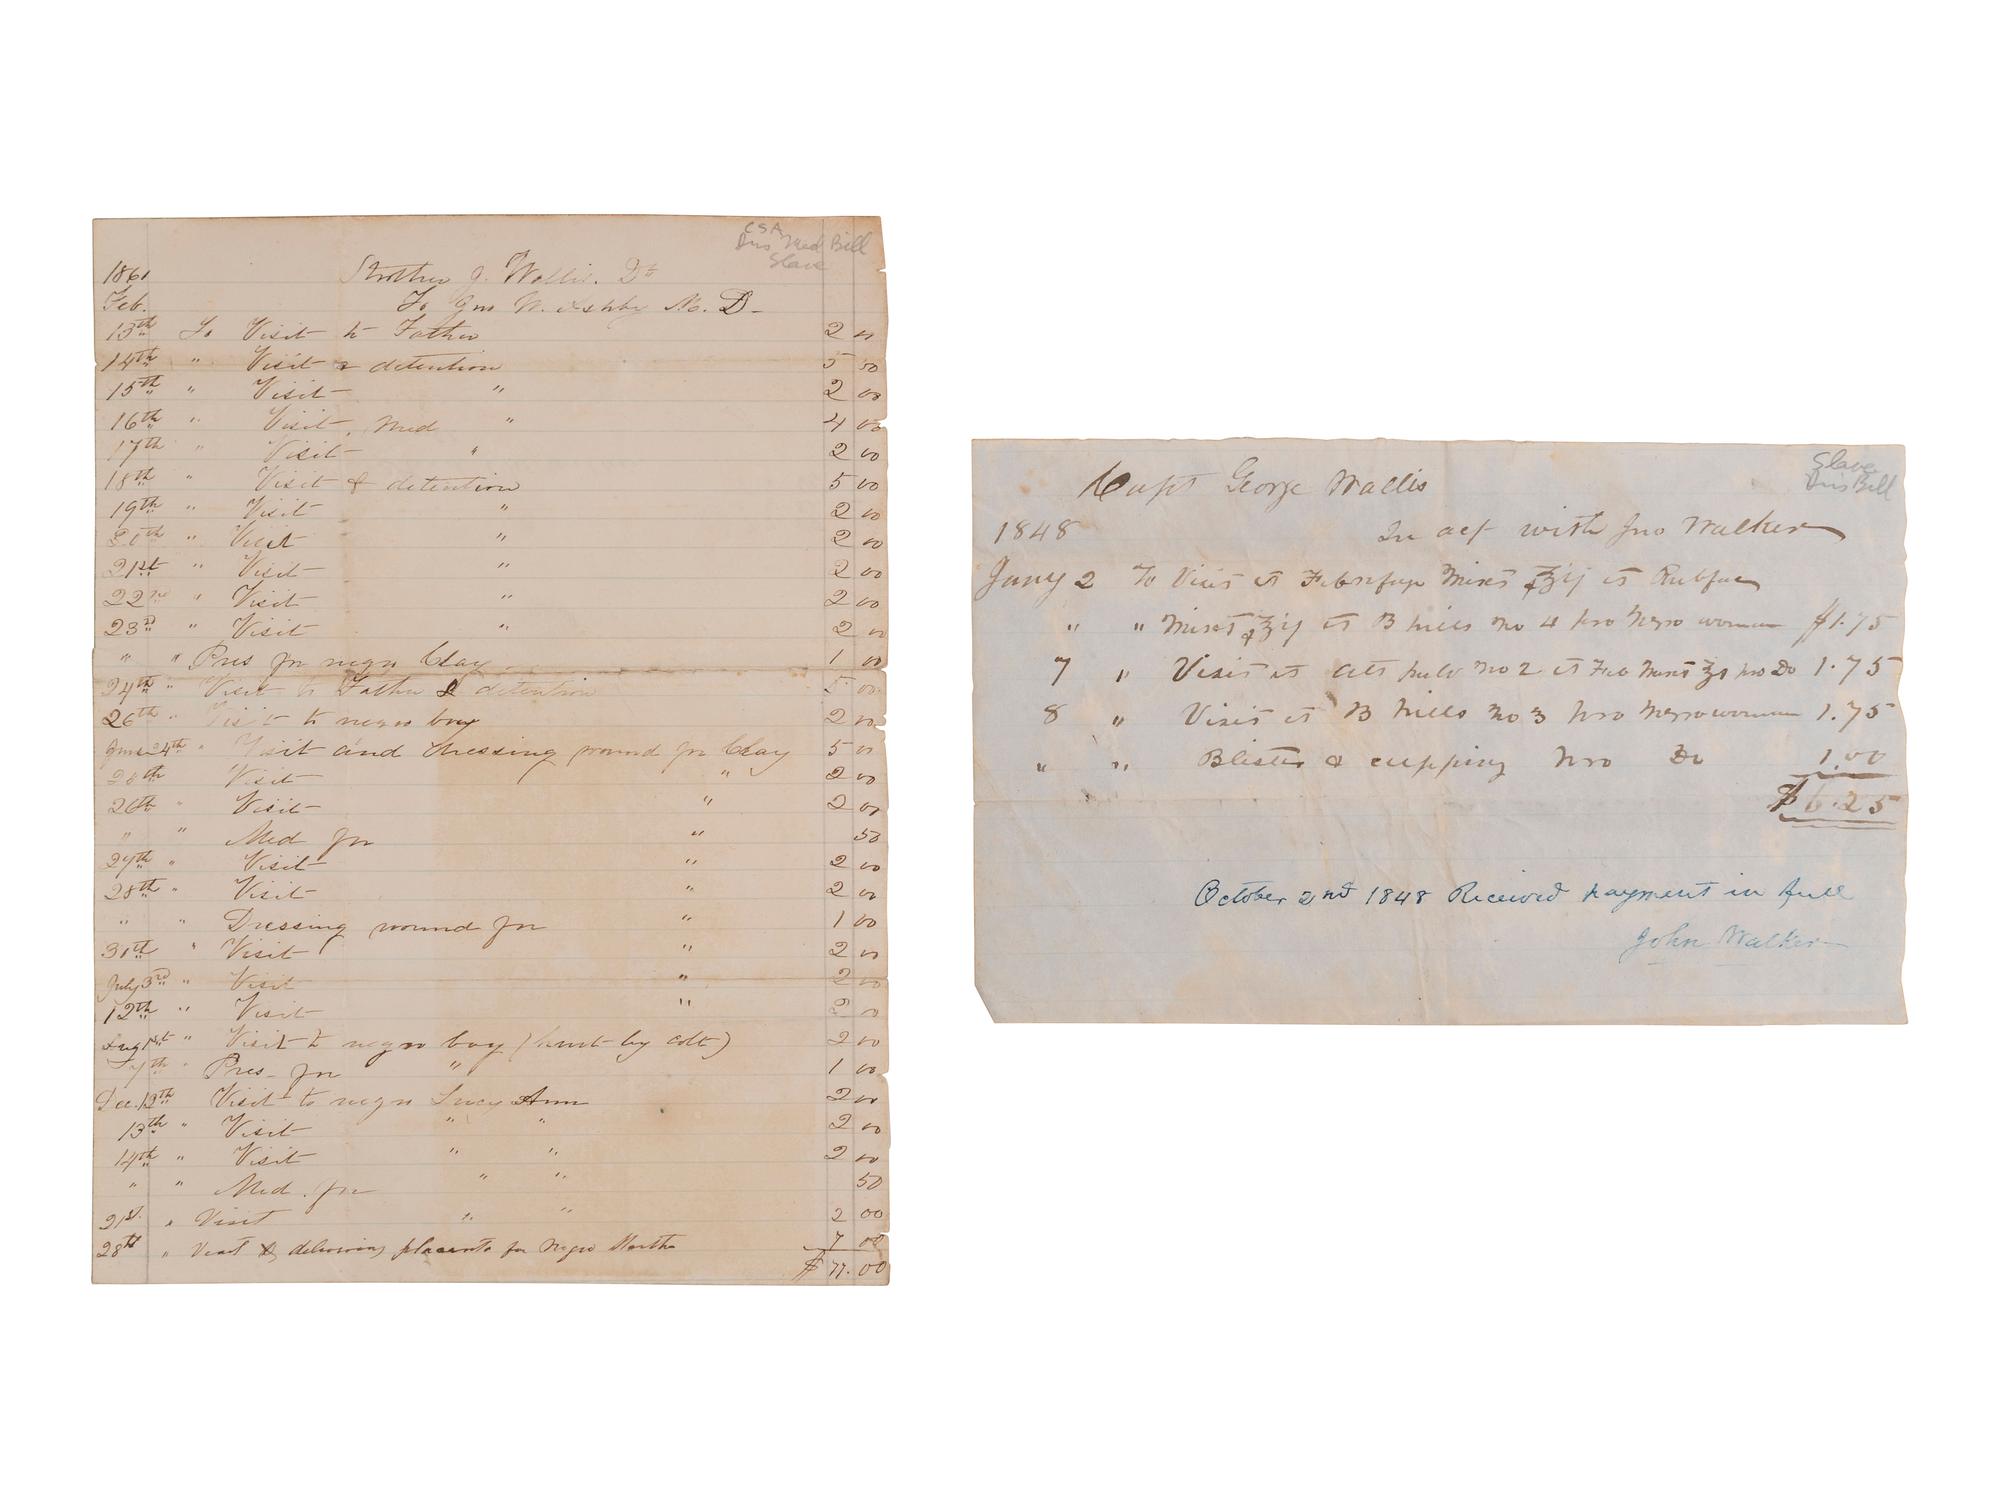 CSA
Med Bill
Slave
1861 Strother J. Wallis. Dr
Feb. To Jno W. Ashby M. D.
13th To Visit to Father 2 00
14th " Visit & detention 5 50
15th " Visit " 2 00
16th " Visit, Med " 4 00
17th " Visit " 2 00
18th " Visit & detention 5 00
19th " Visit " 2 00
20th " Visit " 2 00
21st " Visit " 2 00
22nd " Visit " 2 00
23rd " Visit " 2 00
" " Pres for negro Clay 1 00
24th " Visit to Father & detention 5 00
26th " Visit to negro boy 2 00
June 24th " Visit and dressing wound for Clay 5 00
Visit " 2 00
26th " Visit " 2 00
" " Med for " 50
27th " Visit " 2 00
28th " Visit " 2 00
" " Dressing wound for " 1 00
30th " Visit " 2 00
July 3rd " Visit " 2 00
12th " Visit " 2 00
Aug 1st " Visit to negro boy (hurt by colt) 2 00
7th " Pres- for " 1 00
Dec. 12th Visit to negro Lucy Ann 2 00
13th " Visit " " 2 00
14th " Visit " " 2 00
" " Med. for " " 50
21st. " Visit " " 2 00
28th " Visit & delivering placenta for Negro Martha 7 00
$77.00
Slave
Bill
Capt George Wallis
1848 In act with Jno Walker
Jany 2 To Visit et Febrifuge Mixt et
" " Mixt et B Pills No 4 pro Negro woman $1.75
7 " Visit et No 2 et Feb Mixt pro Do 1.75
8 " Visit et B Pills No 3 pro Negro woman 1.75
" " Blister & cupping pro Do 1.00
$6.25
October 2nd 1848 Received payment in full
John Walker